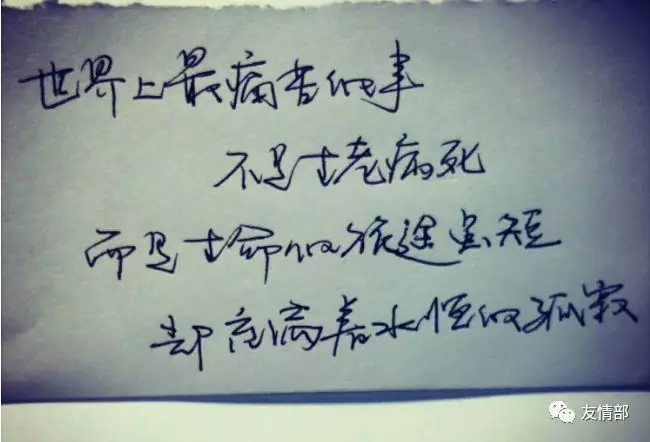 世界上最痛苦的事
不是生老病死
而是生命的旅途虽短
却充满着永恒的孤寂
友情部